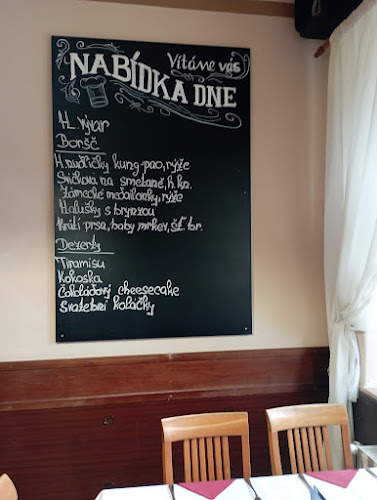 Vítáme vás
NABÍDKA DNE
H. vývar
Boršč
H. nudličky kung-pao, rýže
Svíčková na smetaně, h. kn.
Zámecké medailonky, rýže
Halušky s bryndzou
Krůtí prsa, baby mrkev, šť. br.
Dezerty
Tiramisu
Kokoska
Čokoládový cheesecake
Svatební koláčky